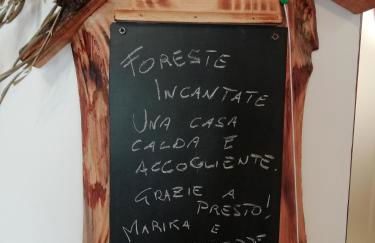 FORESTE
INCANTATE
UNA CASA
CALDA E
ACCOGLIENTE.
GRAZIE A
PRESTO!
MARIKA E